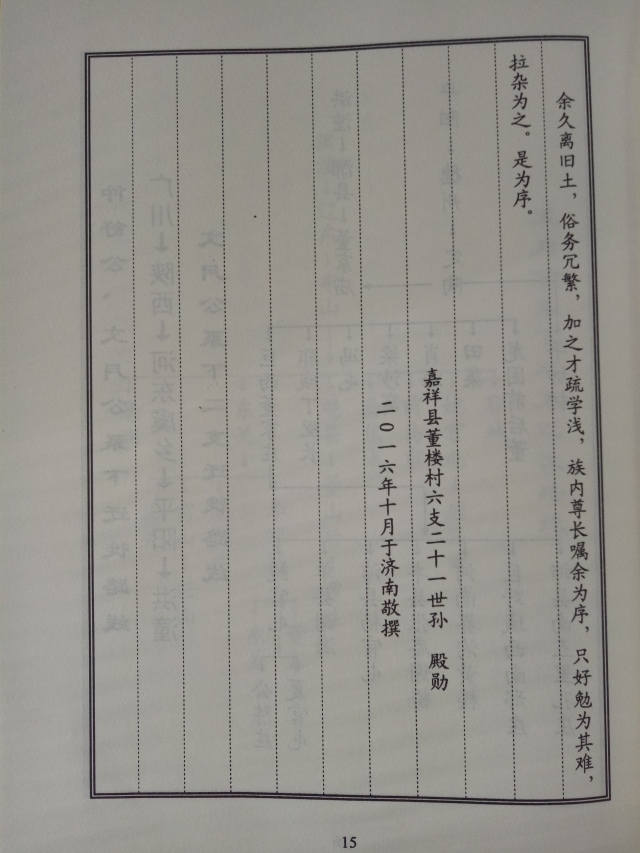 余久离旧土，俗务冗繁，加之才疏学浅，族内尊长嘱余为序，只好勉为其难，
拉杂为之。是为序。
嘉祥县董楼村六支二十一世孙 殿勋
二〇一六年十月于济南敬撰
15